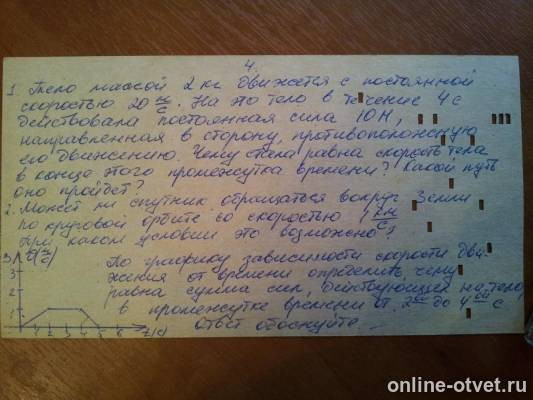 4.
1. Тело массой 2 кг движется с постоянной
скоростью 20 м/с. На это тело в течение 4 с
действовала постоянная сила 10Н,
направленная в сторону, противоположную
его движению. Чему стала равна скорость тела
в конце этого промежутка времени? Какой путь
оно пройдет?
2. Может ли спутник обращаться вокруг Земли
по круговой орбите со скоростью 1 км/с?
При каком условии это возможно?
3 υ(м/с)
3
2
1
0 1 2 3 4 5 6 t(с)
По графику зависимости скорости дви-
жения от времени определить чему
равна сумма сил, действующих на тело,
в промежутке времени от 2ой до 4ой с
Ответ обоснуйте.
online-otvet.ru